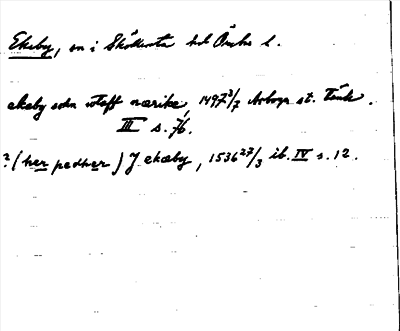 Ekeby, sn i Sköllersta hd Örebro l.
ekeby sokn utaff nærike, 1497 3/7 Arboga st. Tänk.
III s. 76.
? (her pedher) J ekæby, 1536 27/3 ib. IV s. 12.